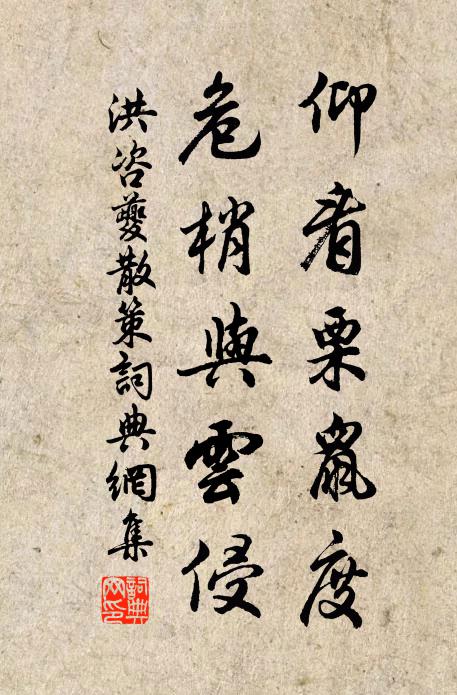 仰看栗鼠度
危梢與雲侵
洪咨夔散策詞典網集
詞典